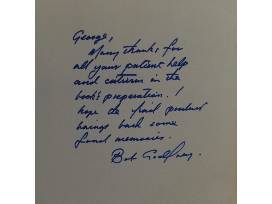 George,
Many thanks for
all your patient help
and criticism in the
book's preparation. I
hope the final product
brings back some
fond memories.
Bob Godfrey.